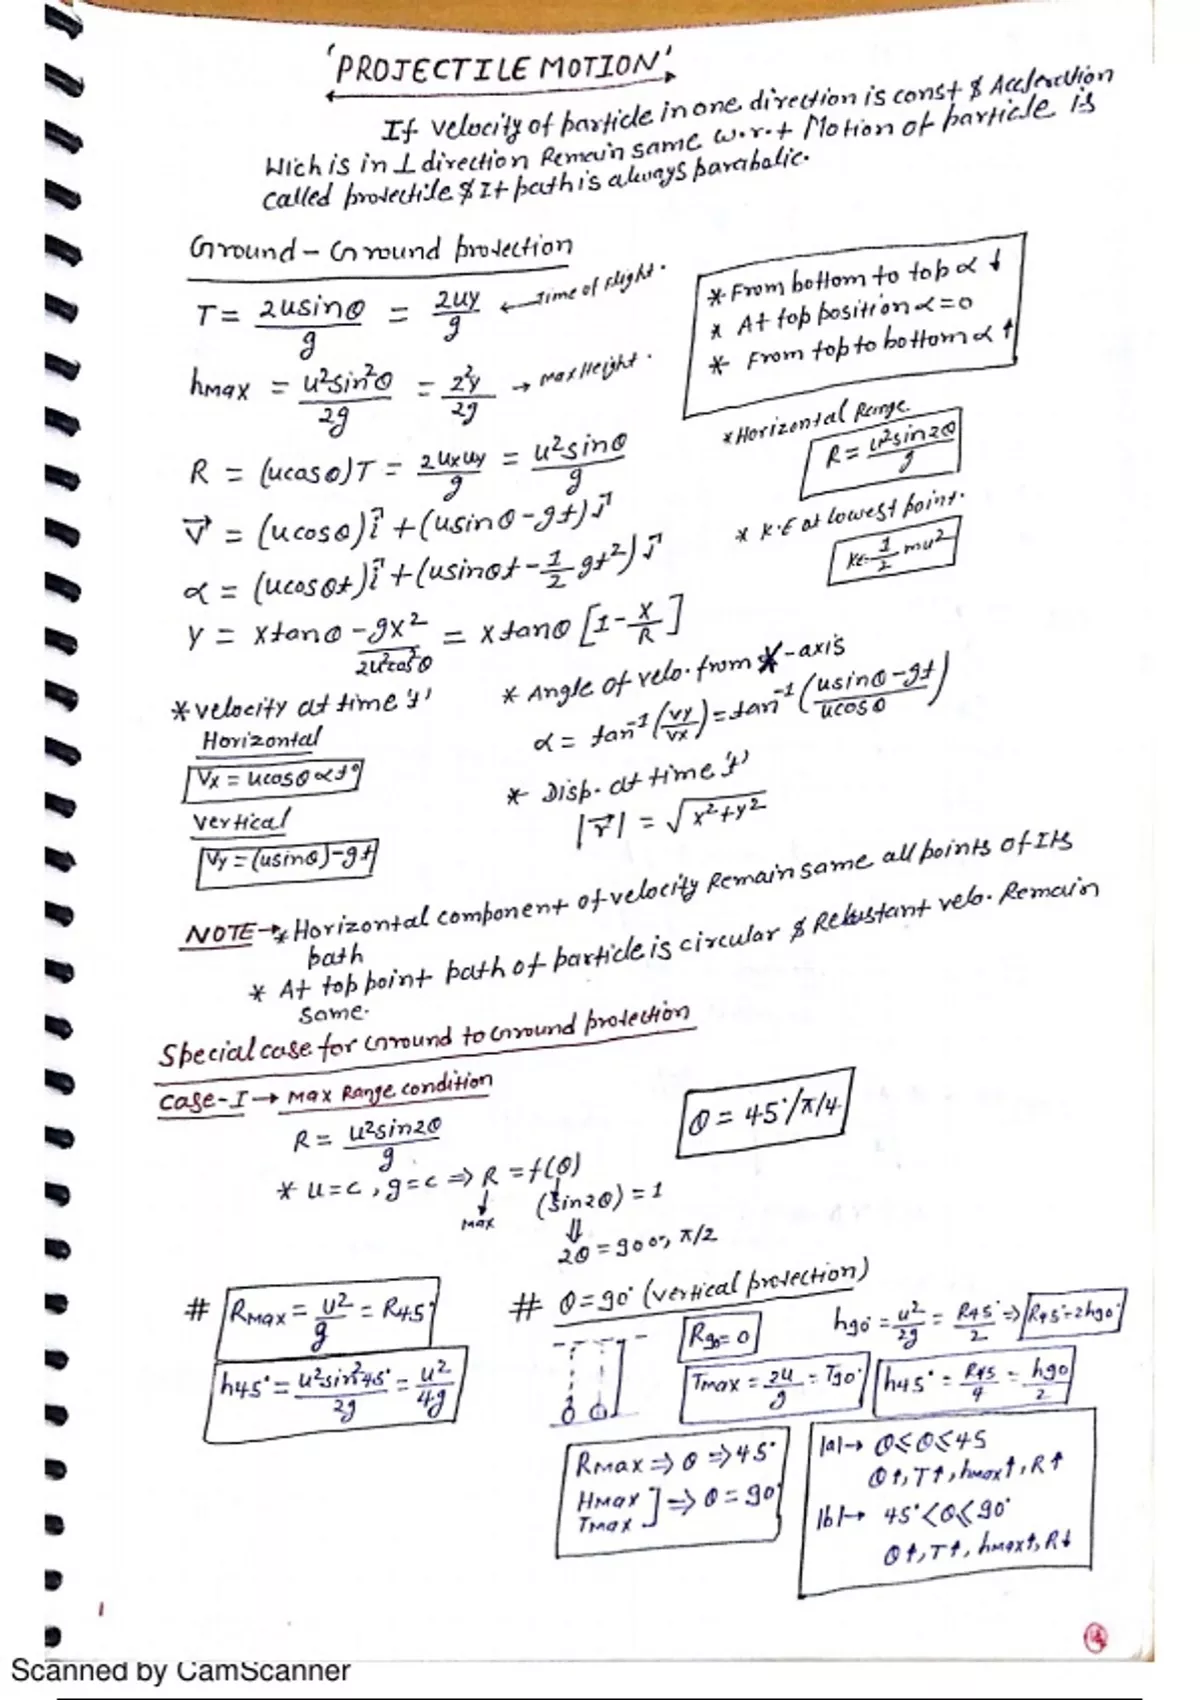 'PROJECTILE MOTION'
If velocity of particle in one direction is const & Acceleration
Wich is in ⊥ direction Remain same w.r.t Motion of particle is
called projectile & It path is always parabolic.
Ground - Ground projection
T = 2usinθ/g = 2uy/g ← Time of flight.
hmax = u²sin²θ/2g = 2²y/2g → max Height.
R = (ucosθ)T = 2uxuy/g = u²sinθ/g
v⃗ = (ucosθ)î + (usinθ-gt)ĵ
α = (ucosθt)î + (usinθt - 1/2 gt²)ĵ
y = xtanθ - gx²/2u²cos²θ = xtanθ [1 - x/R]
* From bottom to top α ↓
* At top position α=0
* From top to bottom α ↑
* Horizontal Range
R = u²sin2θ/g
* K.E at lowest point.
KE = 1/2 mu²
* velocity at time 't'
Horizontal
Vx = ucosθ αt°
vertical
Vy = (usinθ)-gt
* Angle of velo. from X-axis
α = tan⁻¹(vy/vx) = tan⁻¹(usinθ-gt/ucosθ)
* Disp. at time 't'
|r⃗| = √x²+y²
NOTE → * Horizontal component of velocity Remain same all points of Its
path
* At top point path of particle is circular & Relustant velo. Remain
same.
Special case for Ground to Ground projection
Case-I → Max Range condition
R = u²sin2θ/g
θ = 45°/π/4
* u=c, g=c ⇒ R = f(θ)
↓ max (sin2θ) = 1
⇓
2θ = 90°, π/2
# RMax = u²/g = R45°
h45° = u²sin²45°/2g = u²/4g
# θ=90° (vertical projection)
R90=0
Tmax = 2u/g = T90°
h90° = u²/2g = R45°/2 ⇒ R45°=2h90°
h45° = R45/4 = h90/2
RMax ⇒ θ ⇒ 45°
HMax
TMax ] ⇒ θ = 90°
|a| → 0≤θ≤45
θ↑, T↑, hmax↑, R↑
|b| → 45°<θ≤90°
θ↑, T↑, hmax↑, R↓
Scanned by CamScanner